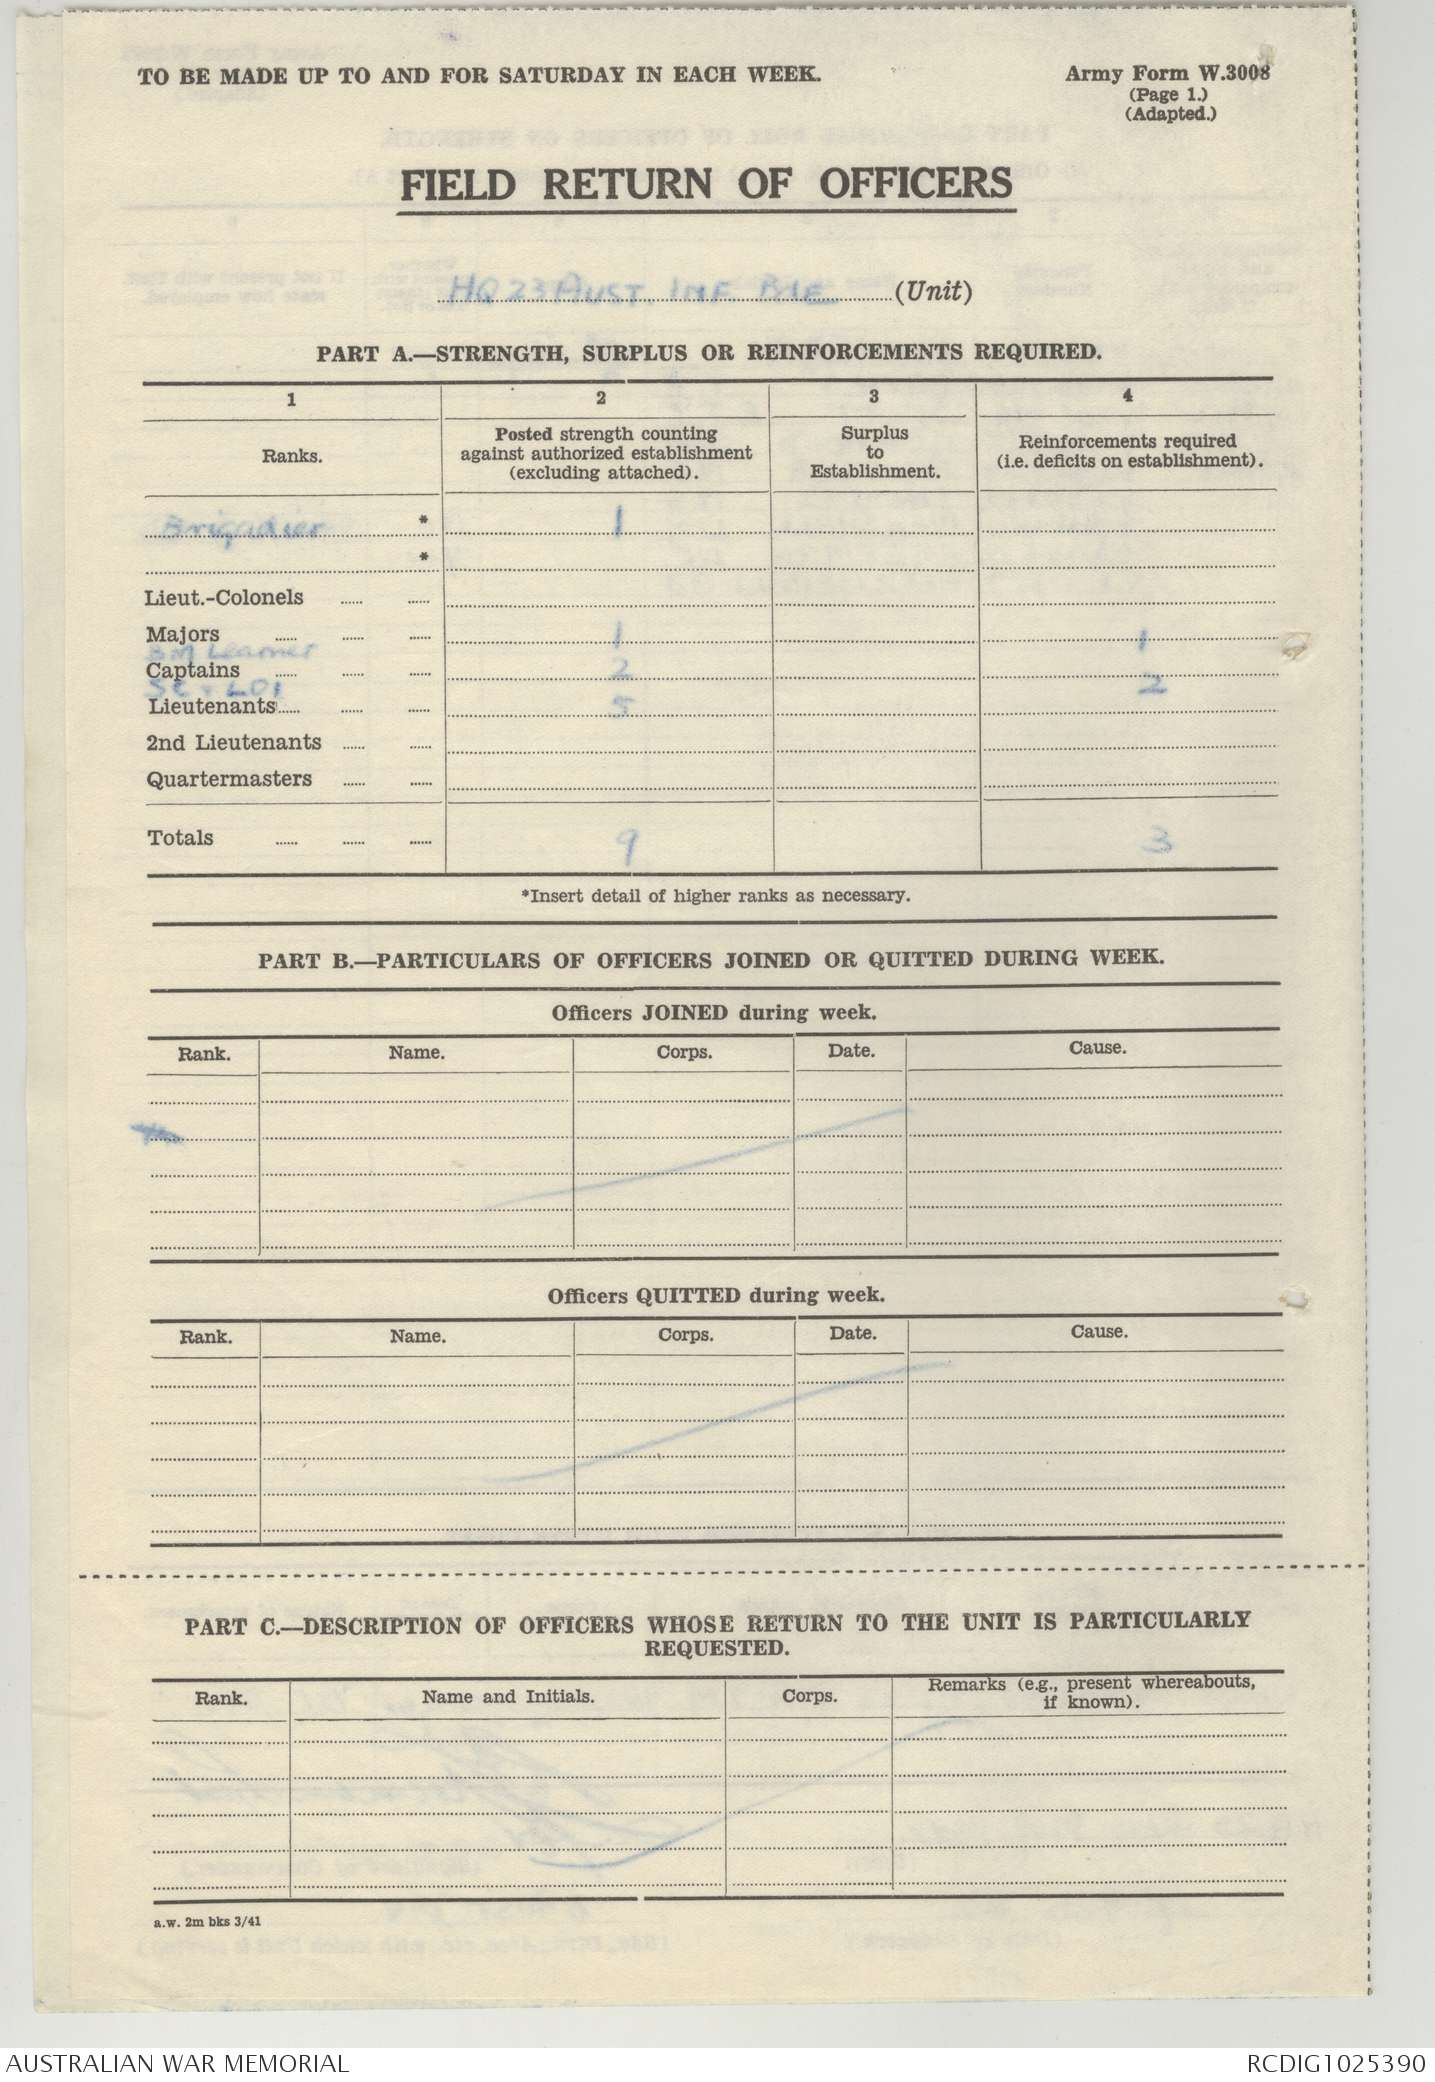 TO BE MADE UP TO AND FOR SATURDAY IN EACH WEEK.
Army Form W.3008
(Page 1.)
(Adapted.)
FIELD RETURN OF OFFICERS
HQ 23 AUST. INF BDE (Unit)
PART A.—STRENGTH, SURPLUS OR REINFORCEMENTS REQUIRED.
1 2 3 4
Ranks.
Posted strength counting against authorized establishment (excluding attached).
Surplus to Establishment.
Reinforcements required (i.e. deficits on establishment).
Brigadier * 1
*
Lieut.-Colonels
Majors 1 1
BM Learner
Captains 2 2
SC + LO1
Lieutenants 5
2nd Lieutenants
Quartermasters
Totals 9 3
*Insert detail of higher ranks as necessary.
PART B.—PARTICULARS OF OFFICERS JOINED OR QUITTED DURING WEEK.
Officers JOINED during week.
Rank. Name. Corps. Date. Cause.
Officers QUITTED during week.
Rank. Name. Corps. Date. Cause.
PART C.—DESCRIPTION OF OFFICERS WHOSE RETURN TO THE UNIT IS PARTICULARLY
REQUESTED.
Rank. Name and Initials. Corps. Remarks (e.g., present whereabouts, if known).
a.w. 2m bks 3/41
AUSTRALIAN WAR MEMORIAL
RCDIG1025390